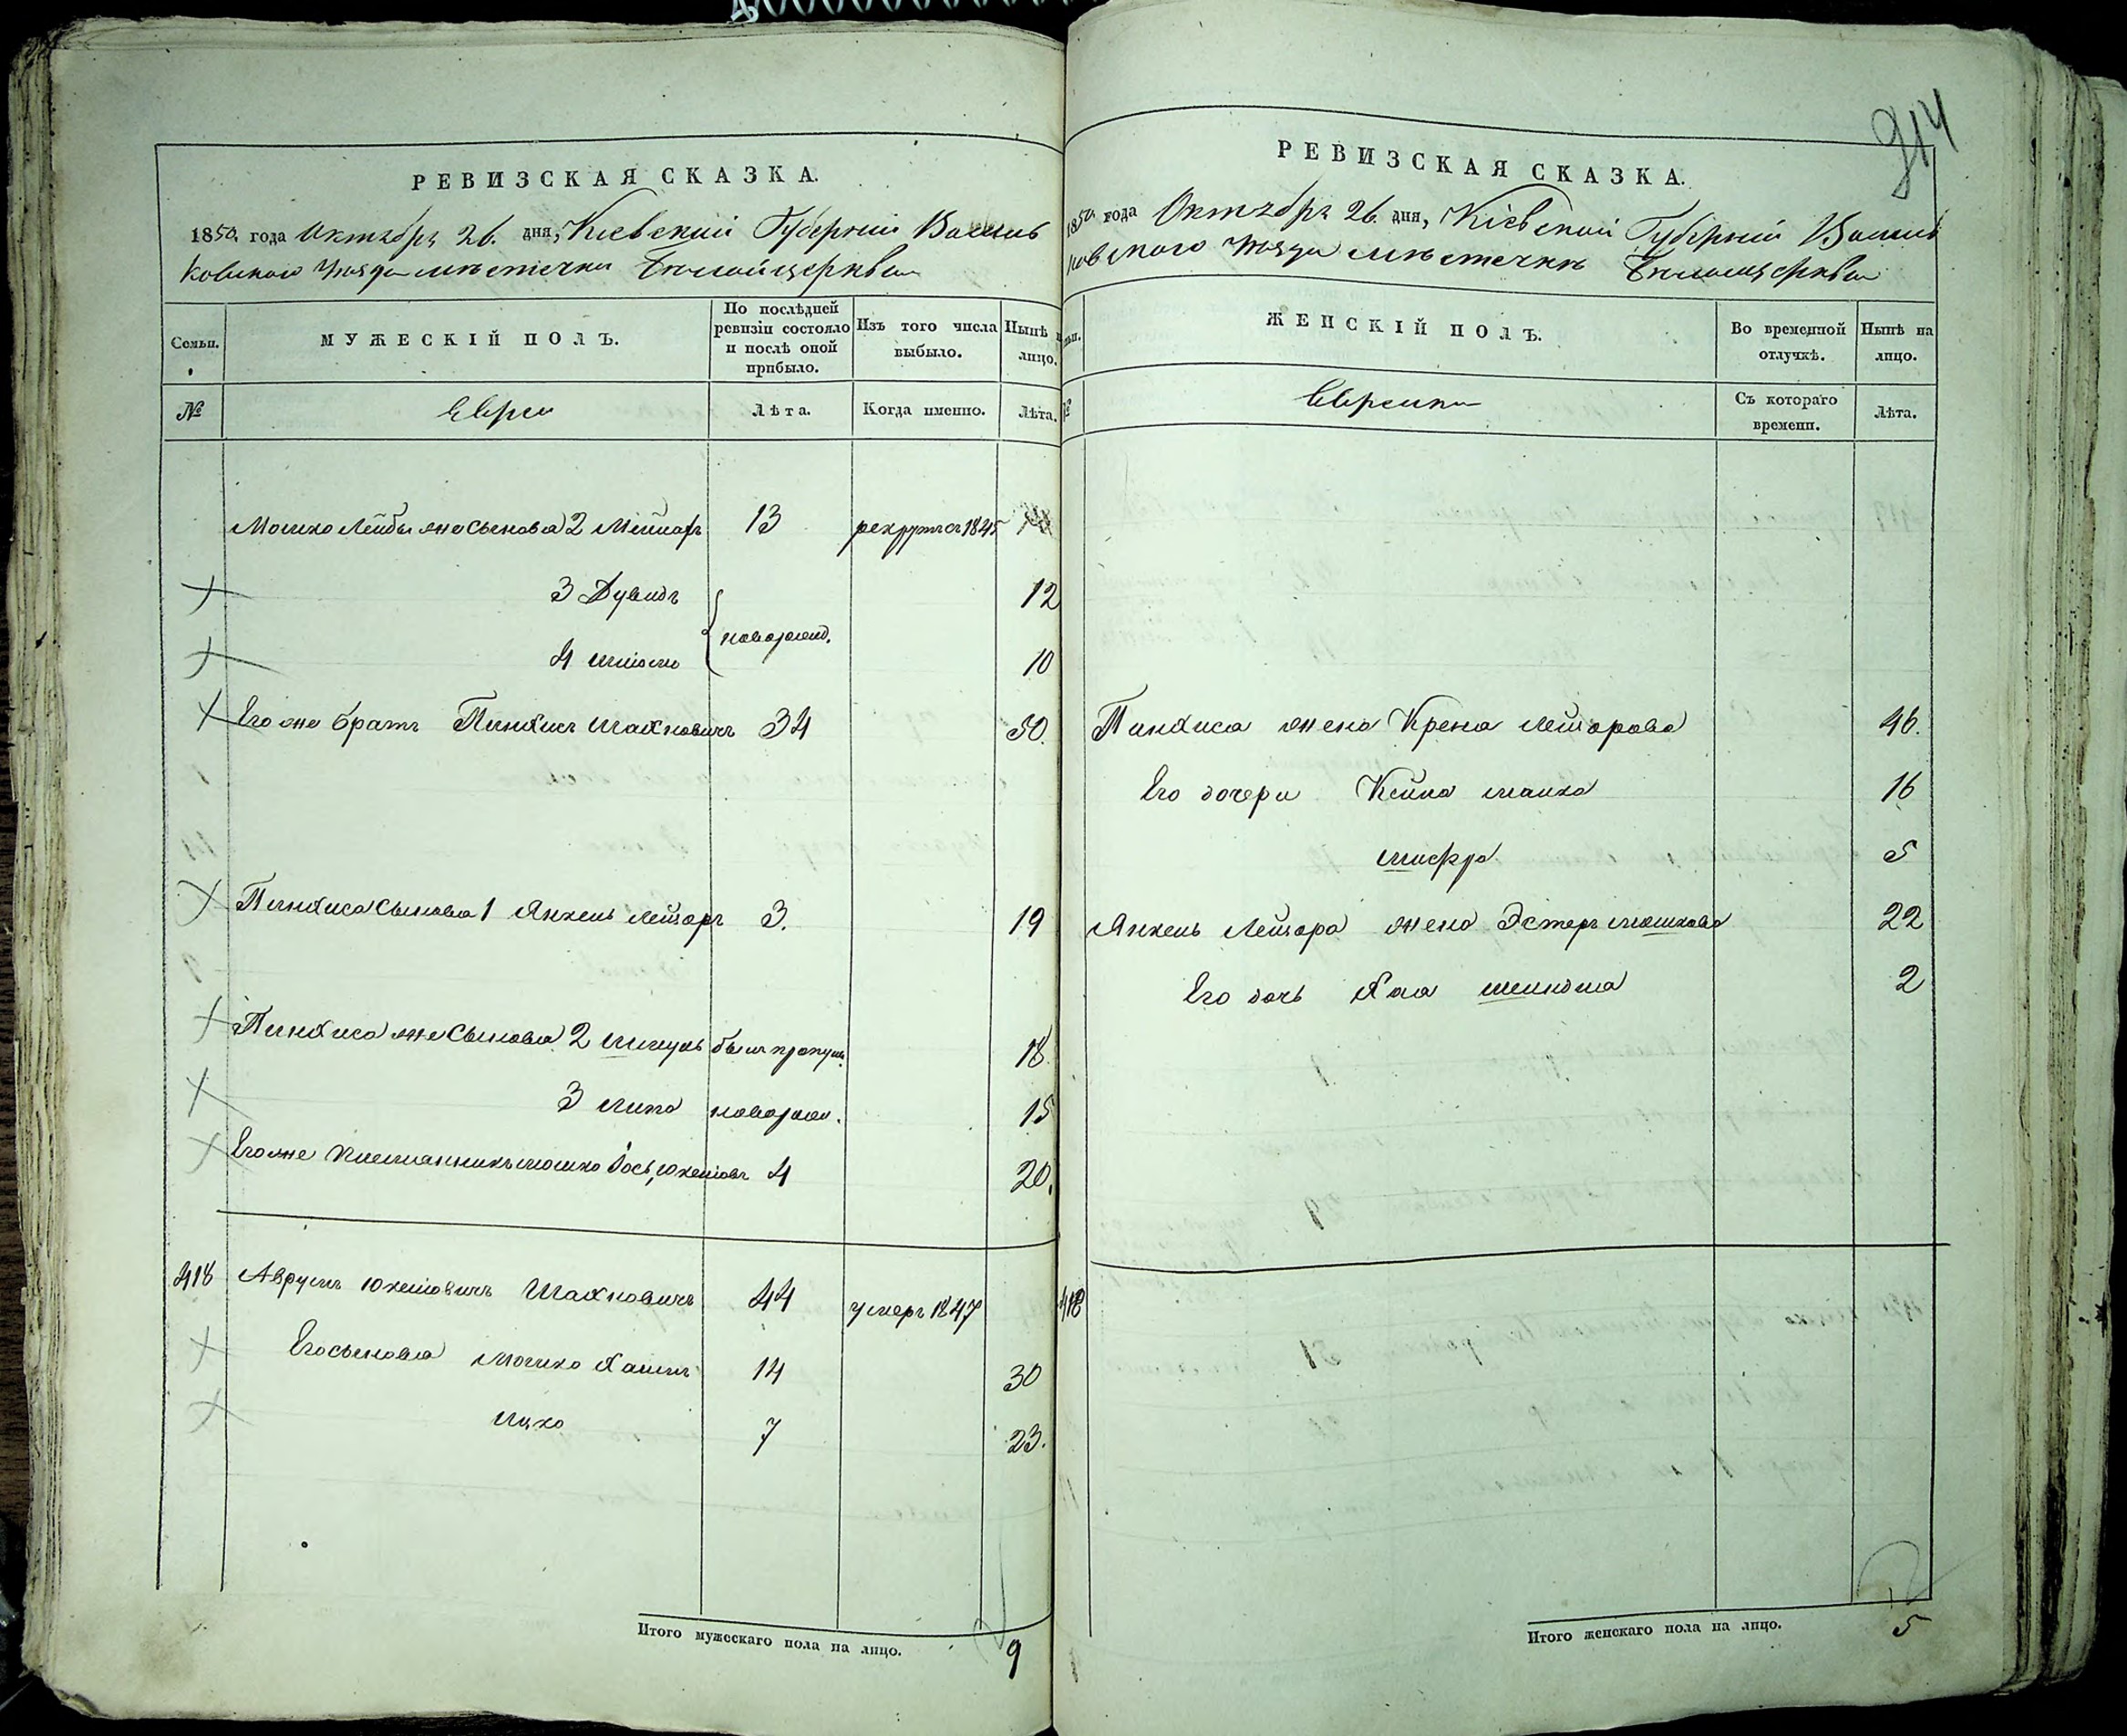 914
РЕВИЗСКАЯ СКАЗКА.
1850 года Октября 26 дня, Кіевской Губерніи Василь
ковскаго уезда местечка Белойцеркви
Семьи.
МУЖЕСКІЙ ПОЛЪ.
По послѣдней ревизіи состояло и послѣ оной прибыло.
Изъ того числа выбыло.
Нынѣ на лицо.
№
Евреи
Лѣта.
Когда именно.
Лѣта.
Мошко Лейбы же сыновья 2 13 рекрутъ съ 1845
3 Дувидъ 12
новорожд.
4 10
Его же братъ Пинхисъ Шахновичъ 34 50.
Пинхиса сыновья 1 Янкель Лейзоръ 3. 19
Пинхиса же сыновья 2 был пропущ. 18
3 новорож. 15
Его же племянникъ Мошко Іось Юкелiовъ 4 20.
418 Аврумъ Юкелiовичъ Шахновичъ 44 умеръ 1847
Его сыновья Мошко Хаимъ 14 30
Ицко 7 23.
Итого мужескаго пола на лицо. 9
РЕВИЗСКАЯ СКАЗКА.
1850 года Октября 26 дня, Кіевской Губерніи Василь
ковского уезда местечке Белоцеркви
ЖЕНСКІЙ ПОЛЪ.
Во временной отлучкѣ.
Нынѣ на лицо.
№
Еврейки
Съ котораго времени.
Лѣта.
Пинхиса жена Крейна Лейзорова 46.
Его дочери Кейла Малка 16
Шифра 5
Янкель Лейзора жена Эстеръ Мошкова 22
Его дочь Хая Шейндля 2
418
Итого женскаго пола на лицо. 5